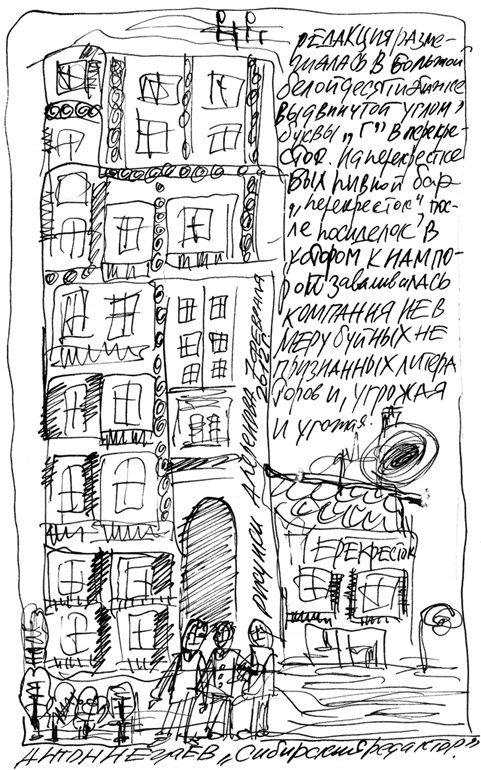 РЕДАКЦИЯ РАЗМЕ-
ЩАЛАСЬ В БОЛЬШОЙ
белой десятиэтажке
выдвинутой углом
буквы „Г" в перекре-
сток. На перекрестке
был пивной бар
„перекресток", пос-
ле посиделок в
котором к нам по-
рой заваливалась
компания не в
меру буйных не
признанных литера
торов и, угрожая
и угожая.
Рисунок Анд
26.12
ЕРЕКРЕСТОК
АНТОН НЕЧАЕВ „Сибирский редактор"